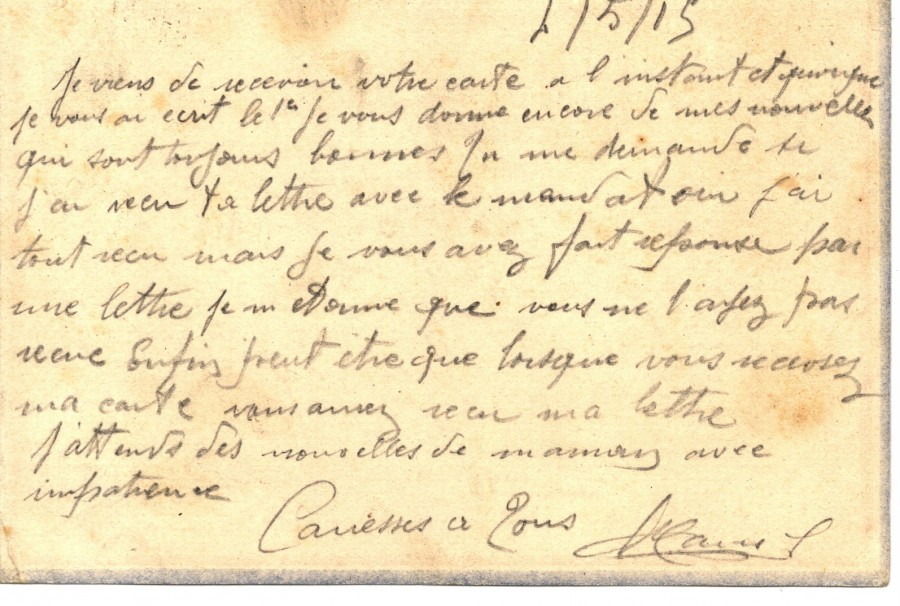 2/5/15
Je viens de recevoir votre carte a l instant et quoique
je vous ai ecrit le 1er je vous donne encore de mes nouvelles
qui sont toujours bonnes Tu me demande si
j'ai recu ta lettre avec le mandat oui j'ai
tout recu mais je vous avez fait reponse par
une lettre je m etonne que vous ne l ayez pas
recue Enfin peut être que lorsque vous recevrez
ma carte vous aurez recu ma lettre
J'attends des nouvelles de maman avec
impatience
Caresses a Tous